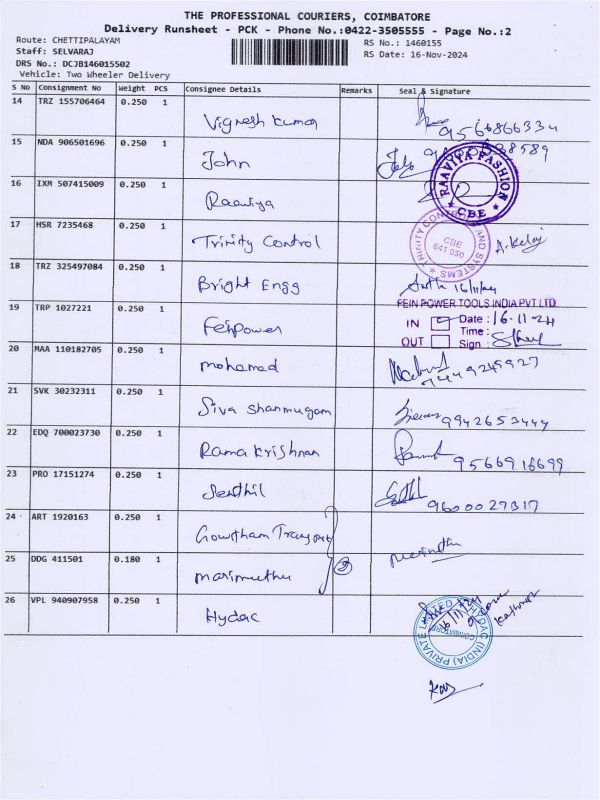 THE PROFESSIONAL COURIERS, COIMBATORE
Delivery Runsheet - PCK - Phone No.:0422-3505555 - Page No.:2
Route: CHETTIPALAYAM
RS No.: 1460155
Staff: SELVARAJ
RS Date: 16-Nov-2024
DRS No.: DCJB146015502
Vehicle: Two Wheeler Delivery
S No Consignment No Weight PCS Consignee Details Remarks Seal & Signature
14 TRZ 155706464 0.250 1 Vignesh Kumar 9566866334
15 NDA 906501696 0.250 1 John
16 IXM 507415009 0.250 1 Raaviya RAAVIYA FASHION CBE
17 HSR 7235468 0.250 1 Trinity Control TRINITY CONTROL AND SYSTEMS CBE 641 050
18 TRZ 325497084 0.250 1 Bright Engg 16/11/24
19 TRP 1027221 0.250 1 Feinpower FEIN POWER TOOLS INDIA PVT LTD
IN Date : 16-11-24
Time :
OUT Sign :
20 MAA 110182705 0.250 1 Mohamed
21 SVK 30232311 0.250 1 Siva Shanmugam 9942653444
22 EDQ 700023730 0.250 1 Rama Krishnan 9566916699
23 PRO 17151274 0.250 1 Senthil 9600027317
24 ART 1920163 0.250 1 Gowtham
25 DDG 411501 0.180 1 Marimuthu 2
26 VPL 940907958 0.250 1 Hydac HYDAC (INDIA) PRIVATE LIMITED COIMBATORE 16/11/24